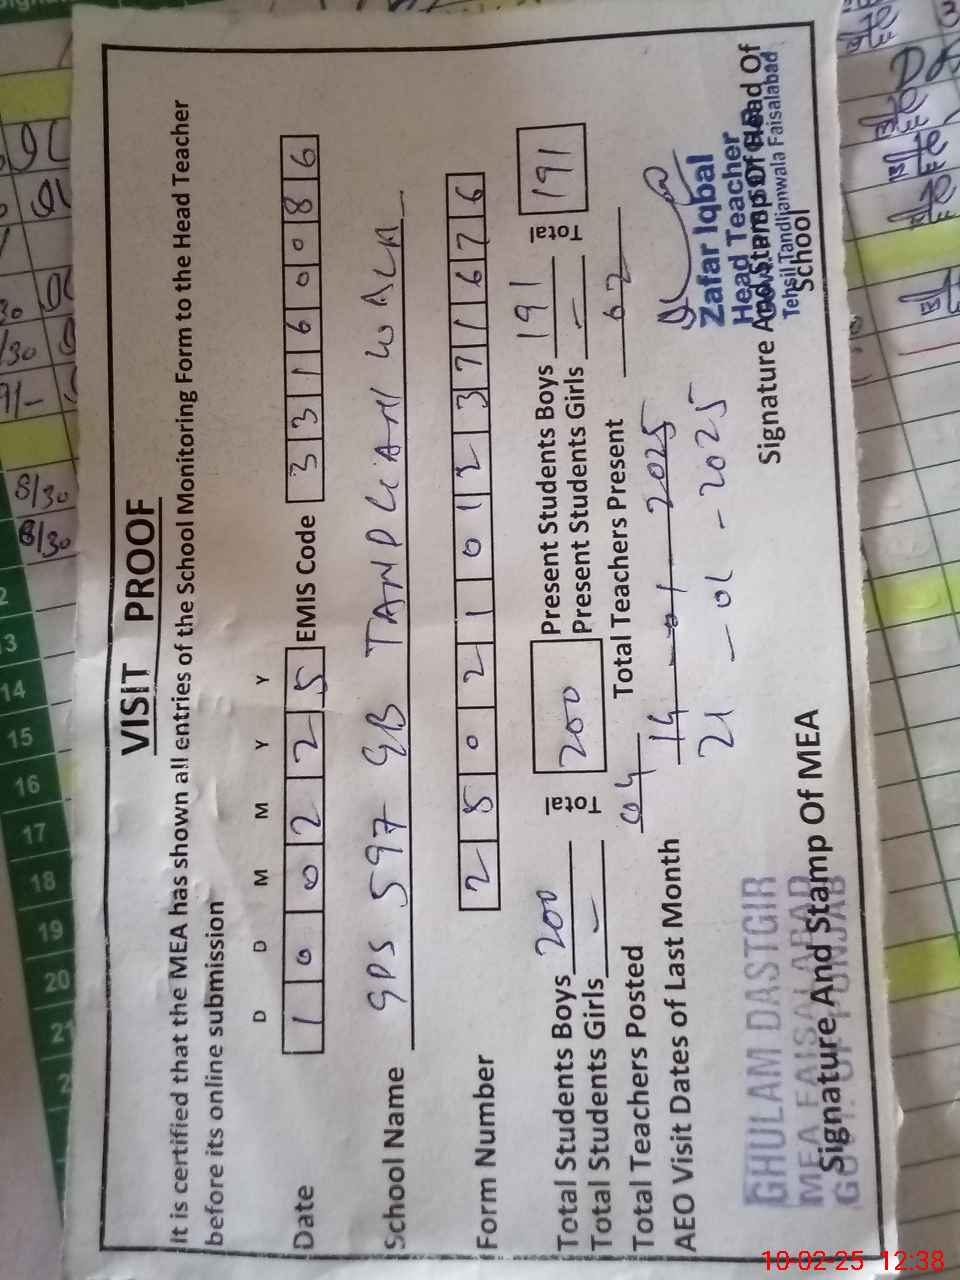 VISIT PROOF
It is certified that the MEA has shown all entries of the School Monitoring Form to the Head Teacher
before its online submission
D D M M Y Y
Date 1 0 0 2 2 5 EMIS Code 3 3 1 6 0 0 8 6
School Name GPS 597 GB TANDLIANWALA
Form Number 2 5 0 2 1 0 1 2 3 7 1 6 7 6
Total Students Boys 200 Total 200 Present Students Boys 191 Total 191
Total Students Girls — Present Students Girls —
Total Teachers Posted 04 Total Teachers Present 02
AEO Visit Dates of Last Month 14 - 01 - 2025
21 - 01 - 2025
Zafar Iqbal
Head Teacher
Tehsil Tandlianwala Faisalabad
Signature And Stamp Of Head Of
School
GHULAM DASTGIR
MEA FAISALABAD
GOVT. OF PUNJAB
Signature And Stamp Of MEA
8/30
8/30
13
14
15
16
17
18
19
20
21
10-02-25 12:38